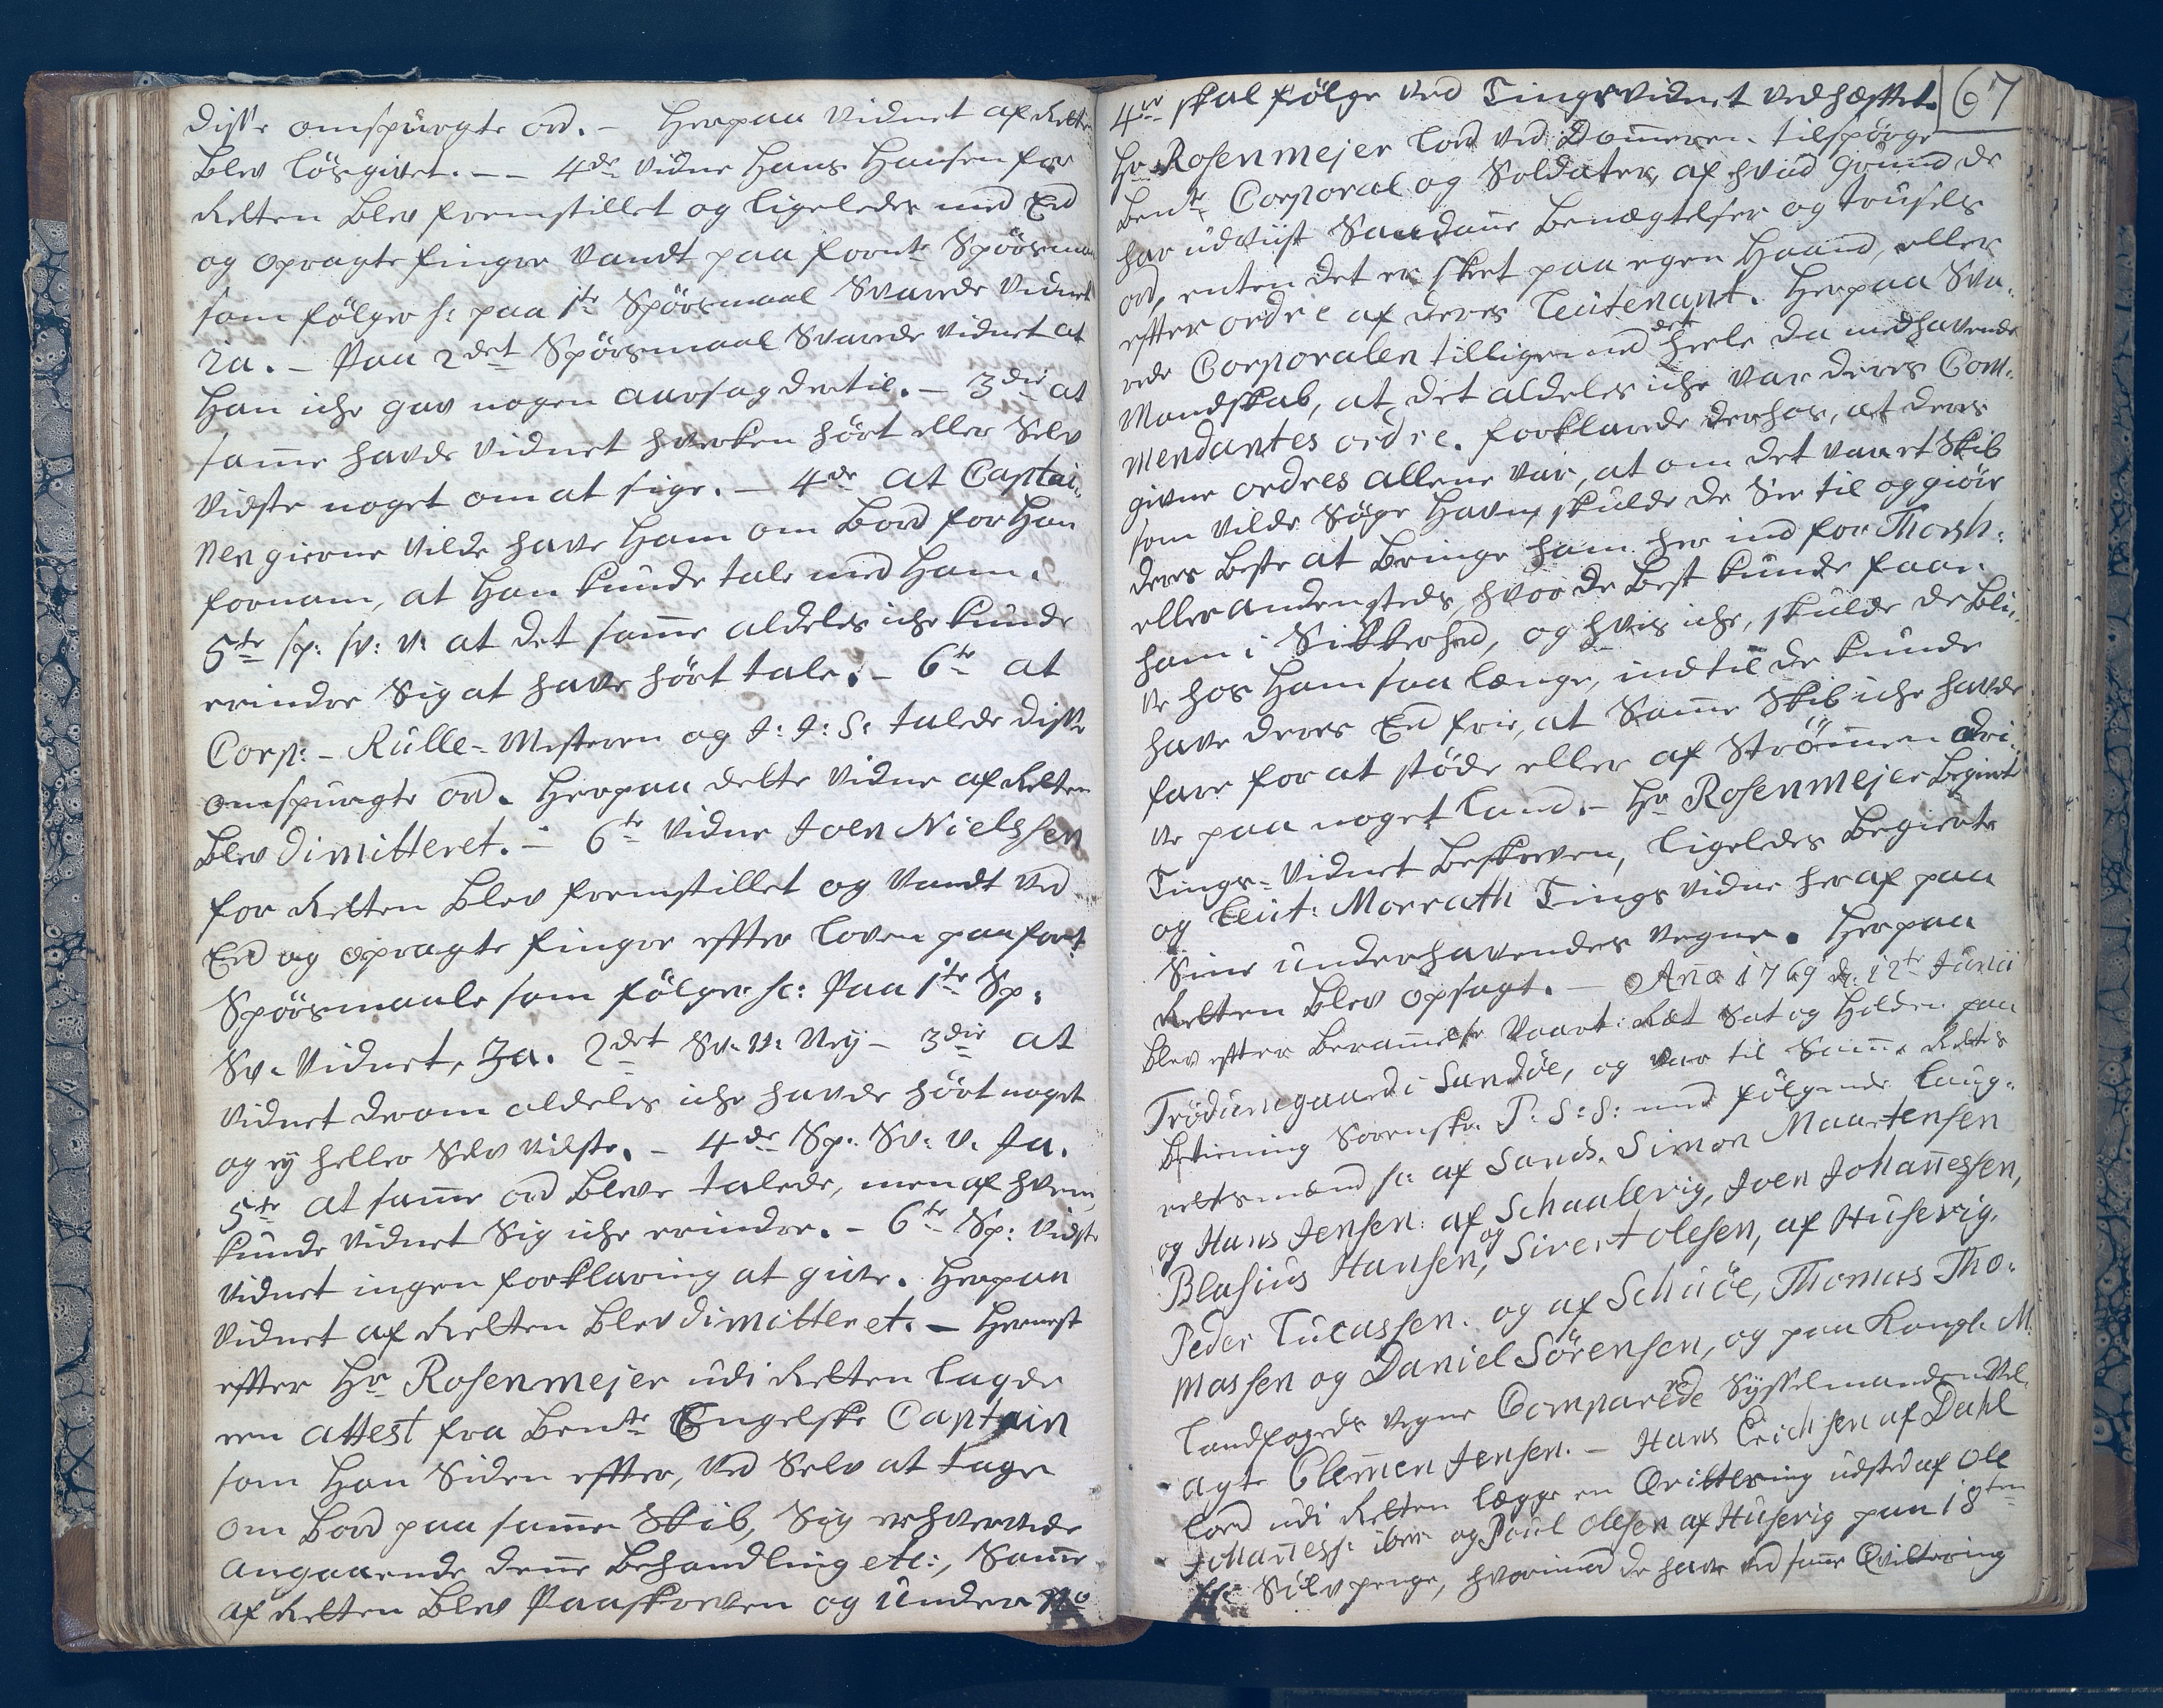 disse omspurgte ord. – Herpaa Vidnet af Retten
blev løsgivet. – – 4de Vidne Hans Hansen for
Retten blev fremstillet og ligeledes med Eed
og opragte finger vandt paa fornte Spørsmaal
som følger sc: paa 1te Spørsmaal Svarede Vidnet
Ja. – Paa 2det Spørsmaal Svarede Vidnet at
Han iche gav nogen aarsag dertil. – 3die at
samme havde Vidnet hverken hørt eller Selv
vidste noget om at sige. – 4de at Captai-
nen gierne vilde have Ham om Bord for Han
fornam, at Han kunde tale med Ham.
5te sp: sv: v: at det samme aldeles iche kunde
erindre Sig at have hørt tale. – 6te at
Corp: – Rulle-Mesteren og J: J: S: talede disse
omspurgte ord. Herpaa dette Vidne af Retten
blev dimitteret. – 6te Vidne Joen Nielssen
for Retten blev fremstillet og Vandt ved
Eed og opragte finger efter loven paa fort
Spørsmaale som følger sc: Paa 1te Sp:
Sv. Vidnet, Ja. 2det Sv. V: Ney – 3die at
Vidnet derom aldeles iche havde hørt noget
og ey heller Selv vidste. – 4de Sp: Sv: V. Ja.
5te at samme ord bleve talede, men af hvem,
kunde Vidnet Sig iche erindre. – 6te Sp: vidste
Vidnet ingen forklaring at give. Herpaa
Vidnet af Retten blev dimitteret. – Hernest
efter Hr Rosenmejer udi Retten lagde
een attest fra bente Engelske Captain
som Han Siden efter, ved Selv at tage
om Bord paa samme Skib, Sig erhvervede
angaaende denne behandling etc:, Samme
af Retten blev Paaskreven og under No
4re skal følge ved Tingsvidnet vedhæftet. 67
Hr Rosenmejer lod ved Dommeren tilspørge
bente Corporal og Soldater, af hvad grund de
har udviist Saadanne benægtelser og trusels
ord, enten det er sket paa egen Haand, eller
efter ordre af deres Leutenant. Herpaa Sva-
rede Corporalen tilligemed det heele da medhavende
Mandskab, at det aldeles iche var deres Com-
mendantes ordre. forklarede derhos, at deres
givne ordres allene var, at om det var et Skib
som vilde Søge Havn, skulde de See til og giøre
deres beste at bringe ham her ind for Thorsh:
eller andensteds, hvor de best kunde faae
ham i Sikkerhed, og hvis iche, skulde de bli-
ve hos Ham saa længe, indtil de kunde
have deres Eed frie, at Samme Skib iche havde
fare for at støde eller af Strømmen dri-
ve paa noget land. – Hr Rosenmejer begierte
Tings-Vidnet beskreven, ligeledes begierte
og Leut: Morrath Tings vidne heraf paa
Sine underhavendes vegne. Herpaa
Retten blev opsagt. – Ano 1769 d: 12te Junii
blev efter berammelse Vaart: Ræt Sat og Holden paa
Trødumgaard i Sandøe, og var til Samme Rettes
betiening Sorenskr. P: S: S: med følgende Laug-
rettesmænd sc: af Sands. Simon Maartensen
og Hans Jensen: af Schaalevig, Joen Johannessen,
Blasius Hansen, og Sivert Olesen, af Husevig.
Peder Lucassen. og af Schuöe, Thomas Tho-
massen og Daniel Sörensen, og paa Kongl. M.
Landfogeds vegne Comparerede Sysselmanden Vel-
agte Clemmen Jensen. – Hans Erichsen af Dahl
lod udi Retten legge en Qvittering udsted af Ole
Johanness: ibm og Poul Olesen af Husevig paa 18ten
Sølv penge, hvormed de have ved samme Qvittering